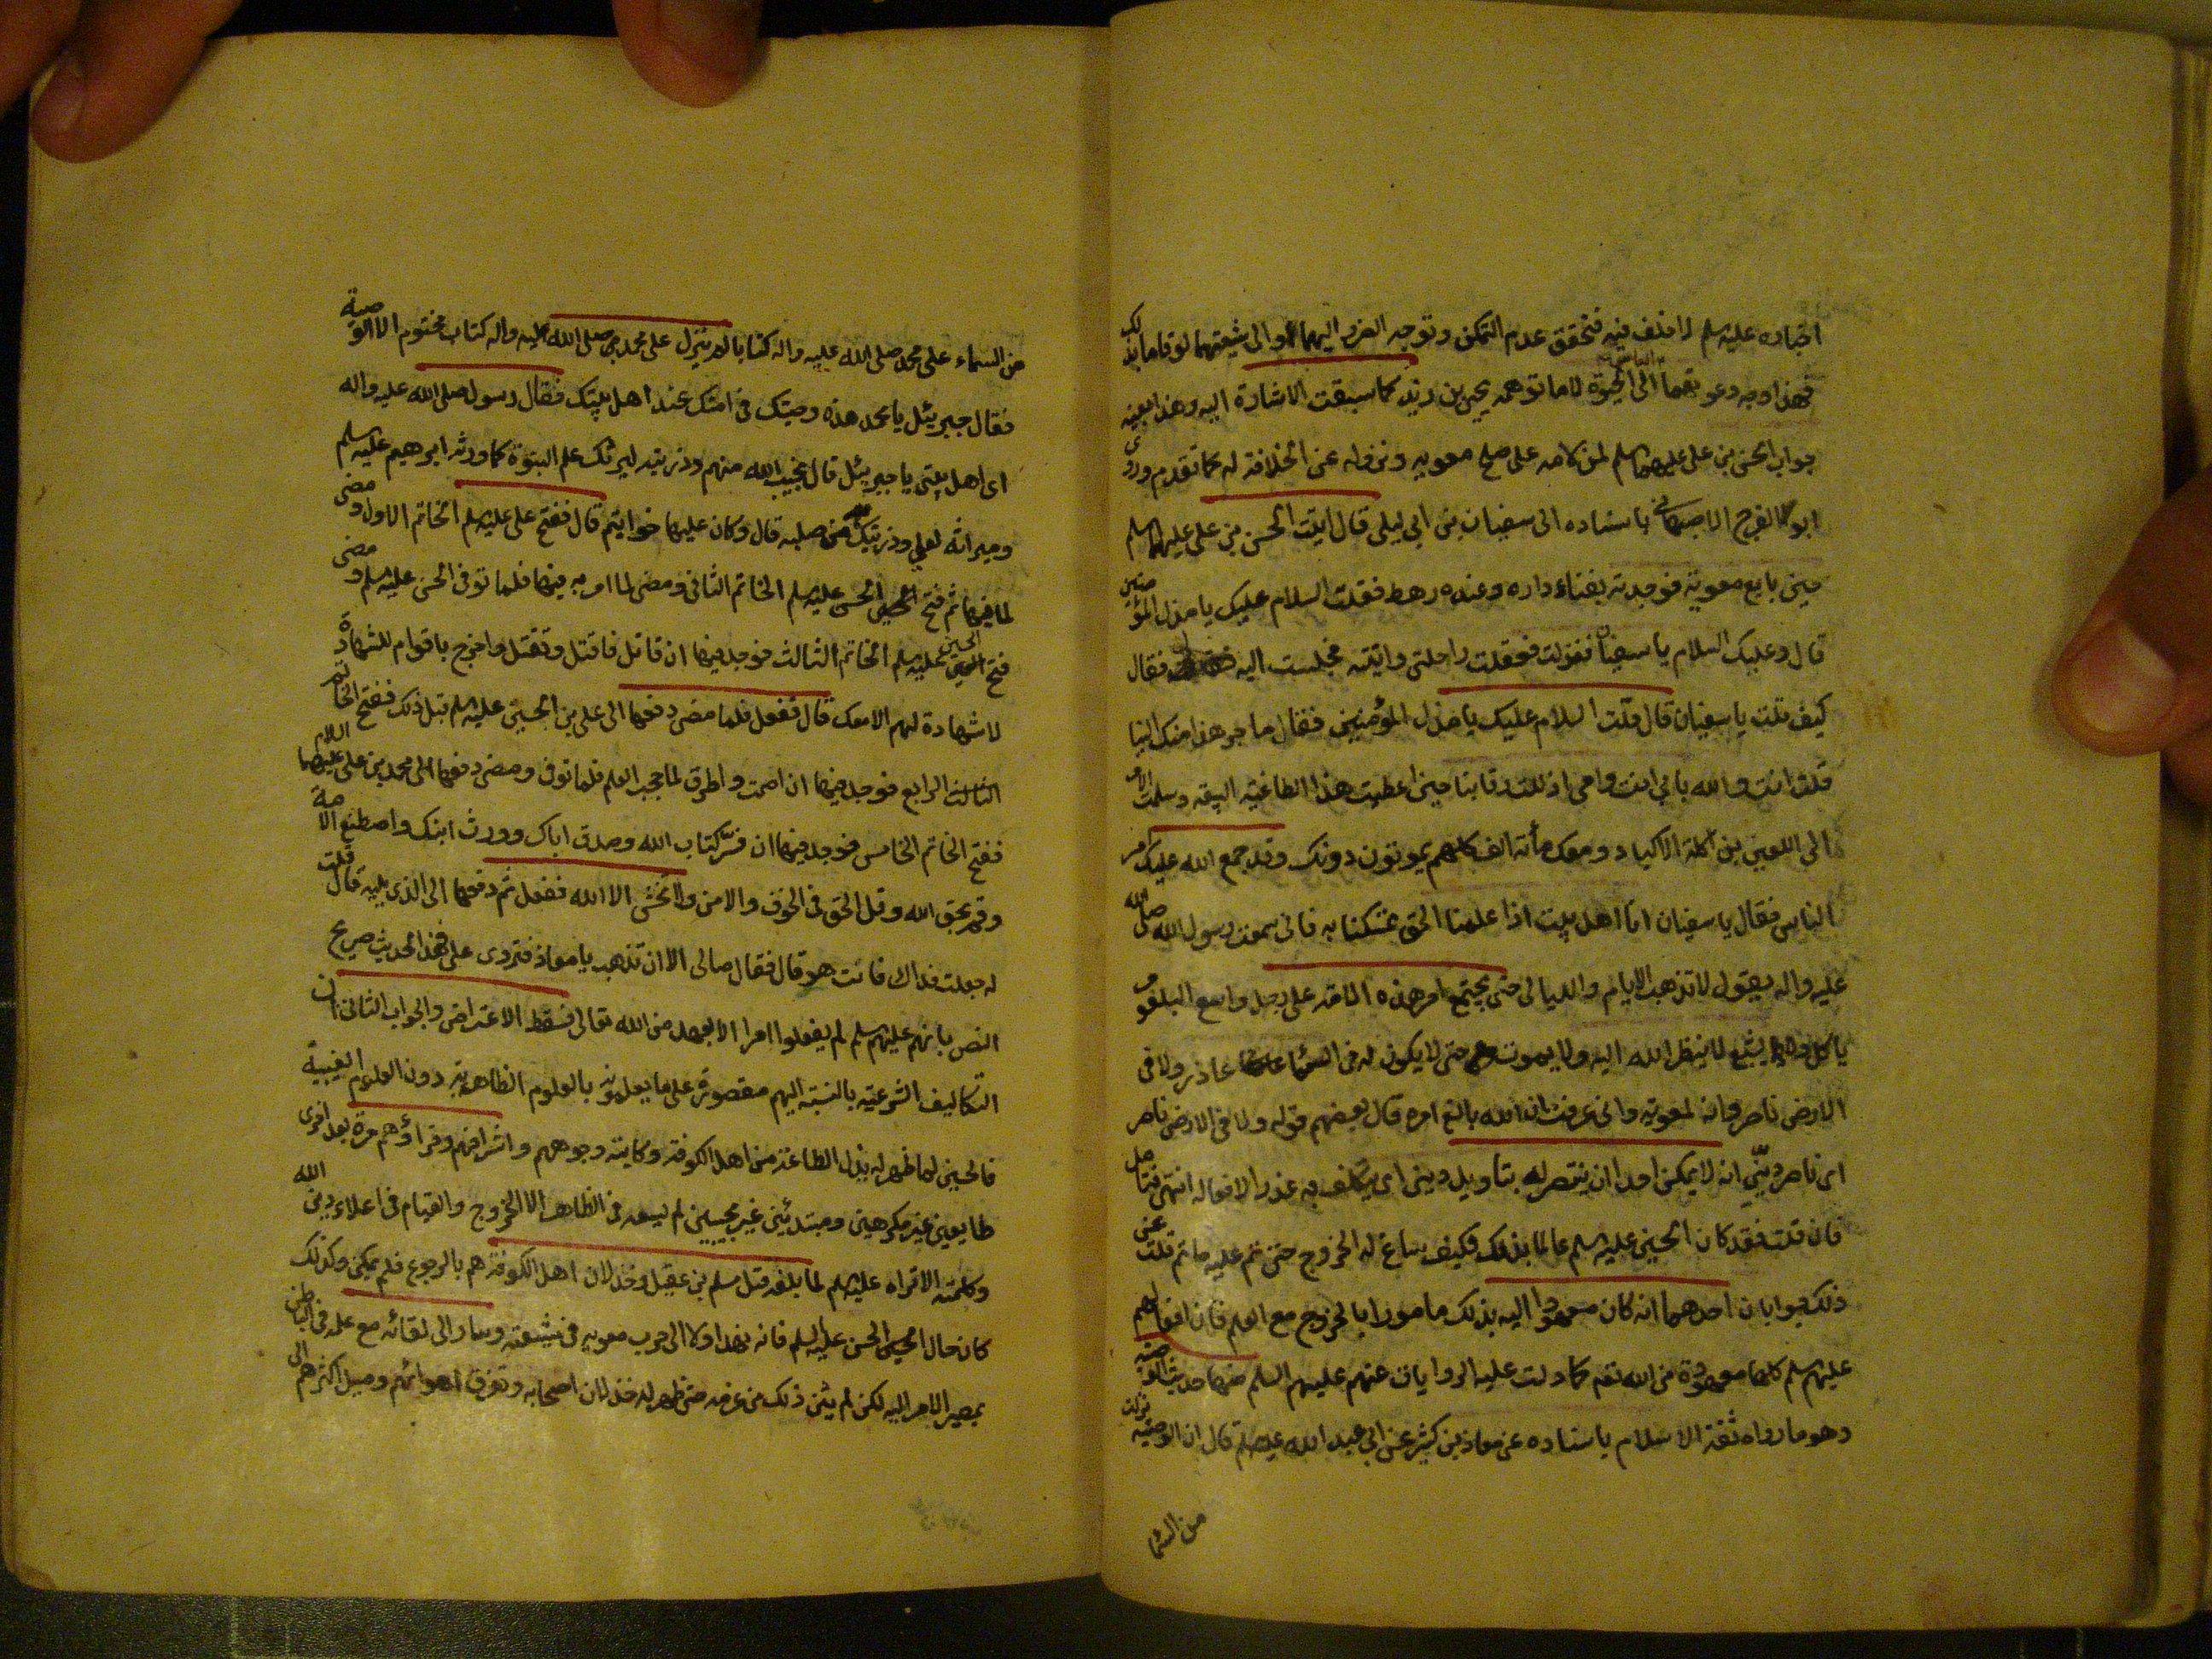 اخباره عليه سلم لا منف فيه فتحقق عدم التمكن وتوجه الضرر اليهما او الى شيعتهما لوقاما بذلك
فهذا وجه دعوتهما الى الحيوة لا ما توهمه يحيى بن زيد كما سبقت الاشارة اليه وهذا بعينه
جواب الحسن بن على عليهما سلم لمن لامه على صلح معويه ونزوله عن الخلافة له كما تقدم وروى
ابو الفرج الاصبهانى باسناده الى سفيان بن ابي ليلى قال اتيت الحسن بن على عليهما سلم
حين بايع معوية فوجدته بفناء داره وعنده رهط فقلت السلام عليك يا مذل المؤمنين
قال وعليك السلام يا سفيان فنزلت فعقلت راحلتى واتيته فجلست اليه فقال
كيف قلت يا سفيان قال قلت السلام عليك يا مذل المؤمنين فقال ما جر هذا منك الينا
قلت انت والله بابي انت وامى اذللت رقابنا حين اعطيت هذا الطاغية البيعة وسلمت الامر
الى اللعين بن اكلة الاكباد ومعك مأئة الف كلهم يموتون دونك وقد جمع الله عليك امر
الناس فقال يا سفيان انا اهل بيت اذا علمنا الحق تمسكنا به فانى سمعت رسول الله صلى الله
عليه واله يقول لا تذهب الايام والليالى حتى يجتمع امر هذه الامة على رجل واسع البلعوم
ياكل ولا يشبع لا ينظر الله اليه ولا يموت حتى لا يكون له فى السماء عاذر ولا فى
الارض ناصر وانه لمعوية وانى عرفت ان الله بالغ امره قال بعضهم قوله ولا فى الارض ناصر
اى ناصر دينّي انه لا يمكن احدا ان ينتصر له بتاويل دينى اى يتكلف به عذر الافعاله انتهى فتامل
فان قلت فقد كان الحسين عليه سلم عالما بذلك فكيف ساغ له الخروج حتى تم عليه ما تم قلت عن
ذلك جوابان احدهما انه كان معهودا اليه بذلك مامورا بالخروج مع العلم فان افعالهم
عليهم سلم كلها معهودة من الله تعه كما دلت عليه الروايات عنهم عليهم السلم منها حديث الوصية
وهو ما رواه ثقة الاسلام باسناده عن معاذ بن كثير عن ابي عبد الله عليه سلم قال ان الوصية نزلت
من السما
من السماء على محمد صلى الله عليه واله كتابا لم ينزل على محمد صلى الله عليه واله كتاب مختوم الا الوصية
فقال جبريئل يا محمد هذه وصيتك فى امتك عند اهل بيتك فقال رسول صلى الله عليه واله
اى اهل بيتى يا جبريئل قال نجيب الله منهم وذريته ليرثك علم النبوة كما ورثه ابرهيم عليه سلم
وميراثه لعلي وذريتك من صلبه قال وكان عليها خواتيم قال ففتح على عليه سلم الخاتم الاول ومضى
لما فيها ثم فتح الحسن عليه سلم الخاتم الثانى ومضى لما امر به فيها فلما توفى الحسن عليه سلم ومضى
فتح الحسين عليه سلم الخاتم الثالث فوجد فيها ان قاتل فاقتل وتقتل واخرج باقوام للشهادة
لا شهادة لهم الا معك قال ففعل فلما مضى دفعها الى على بن الحسين عليه سلم قبل ذلك ففتح الخاتم
الرابع فوجد فيها ان اصمت واطرق لما حجب العلم فلما توفى ومضى دفعها الى محمد بن على عليهما السلام
ففتح الخاتم الخامس فوجد فيها ان فسّر كتاب الله وصدق اباك وورث ابنك واصطنع الامة
وقم بحق الله وقل الحق فى الخوف والامن ولا تخش الا الله ففعل ثم دفعها الى الذى يليه قال قلت
له جعلت فداك فانت هو قال فقال مالى الا ان تذهب يا معاذ فتروى على فهذا الحديث صريح
النص بانهم عليهم سلم لم يفعلوا امرا الا بعهد من الله تعالى فسقط الاعتراض والجواب الثانى ان
التكاليف الشرعية بالنسبة اليهم مقصورة على ما يعلمونه بالعلوم الظاهرية دون العلوم الغيبية
فالحسين لما ظهر له بذل الطاعة من اهل الكوفة وكاتبه وجوههم واشرافهم وقراؤهم مرة بعد اخرى
طايعين غير مكرهين ومبتدئين غير مجيبين لم يسعه فى الظاهر الا الخروج والقيام فى اعلاء دين الله
وكلمته الا تراه عليه سلم لما بلغه قتل مسلم بن عقيل وخذلان اهل الكوفة هم بالرجوع فلم يمكن وكذلك
كان حال الحسن عليه السلم فانه نهد اولا الى حرب معويه فى شيعته وسار الى لقائه مع علمه فى الباطن
بمصير الامر اليه لكن لم يثن ذلك من عزمه حتى ظهر له خذلان اصحابه وتفرق اهوائهم وميل اكثرهم الى